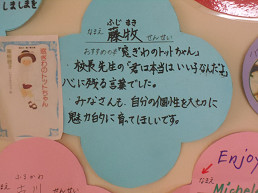 しましまを
ふじ まき
なまえ 藤牧 せんせい
おすすめの本「窓ぎわのトットちゃん」
・校長先生の「君は本当はいい子なんだよ」
心に残る言葉でした。
・みなさんも、自分の個性を大切に
魅力的に育てほしいです。
窓ぎわのトットちゃん
なまえ
せんせい
Enjoy
なまえ
Michel